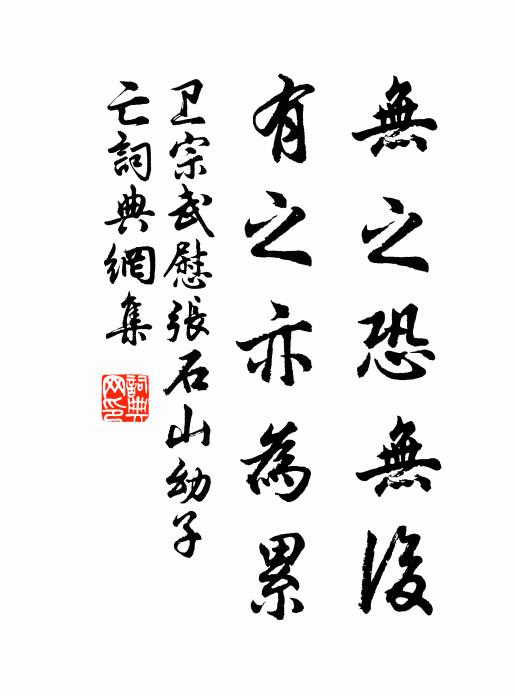 無之恐無後
有之亦為累
卫宗武慰張石山幼子
亡詞典網集
詞典
网印